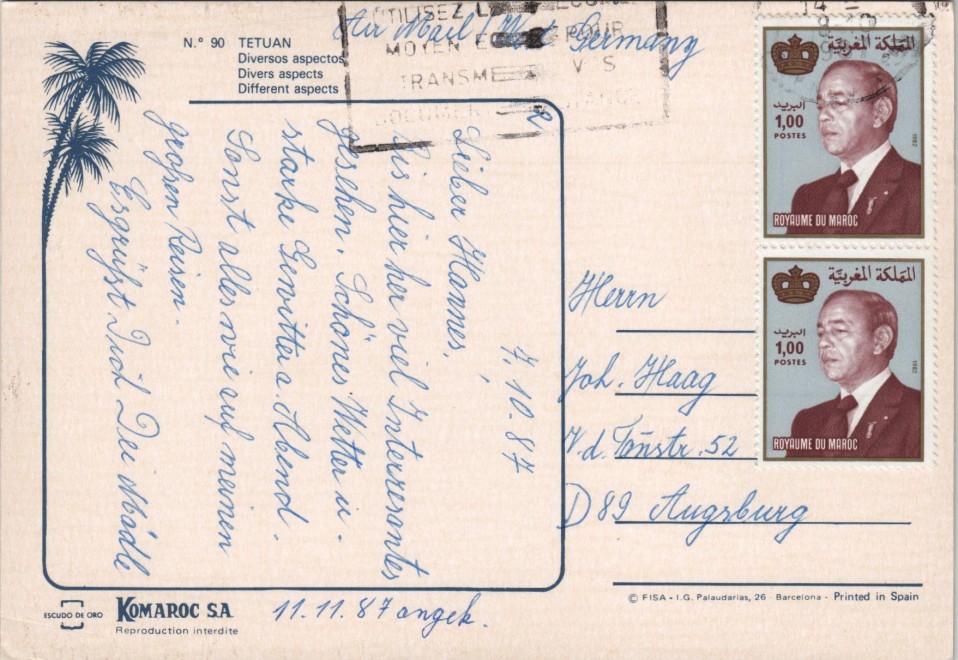 N.° 90 TETUAN
Diversos aspectos
Divers aspects
Different aspects
UTILISEZ
MOYEN POUR
TRANSME
DOCUMEN
Air Mail / West Germany
المملكة المغربية
البريد
1,00
POSTES
1982
ROYAUME DU MAROC
المملكة المغربية
البريد
1,00
POSTES
1982
ROYAUME DU MAROC
7.10.87
Lieber Hannes,
bis hier her viel Interessantes
gesehen. Schönes Wetter u.
starke Gewitter a. Abend.
Sonst alles wie auf meinen
großen Reisen.
Es grüßt Dich Dei Mädle
Herrn
Joh. Haag
V. d. Tannstr. 52
D 89 Augsburg
ESCUDO DE ORO
KOMAROC S.A.
Reproduction interdite
11.11.87 angek.
© FISA - I.G. Palaudarias, 26 - Barcelona - Printed in Spain